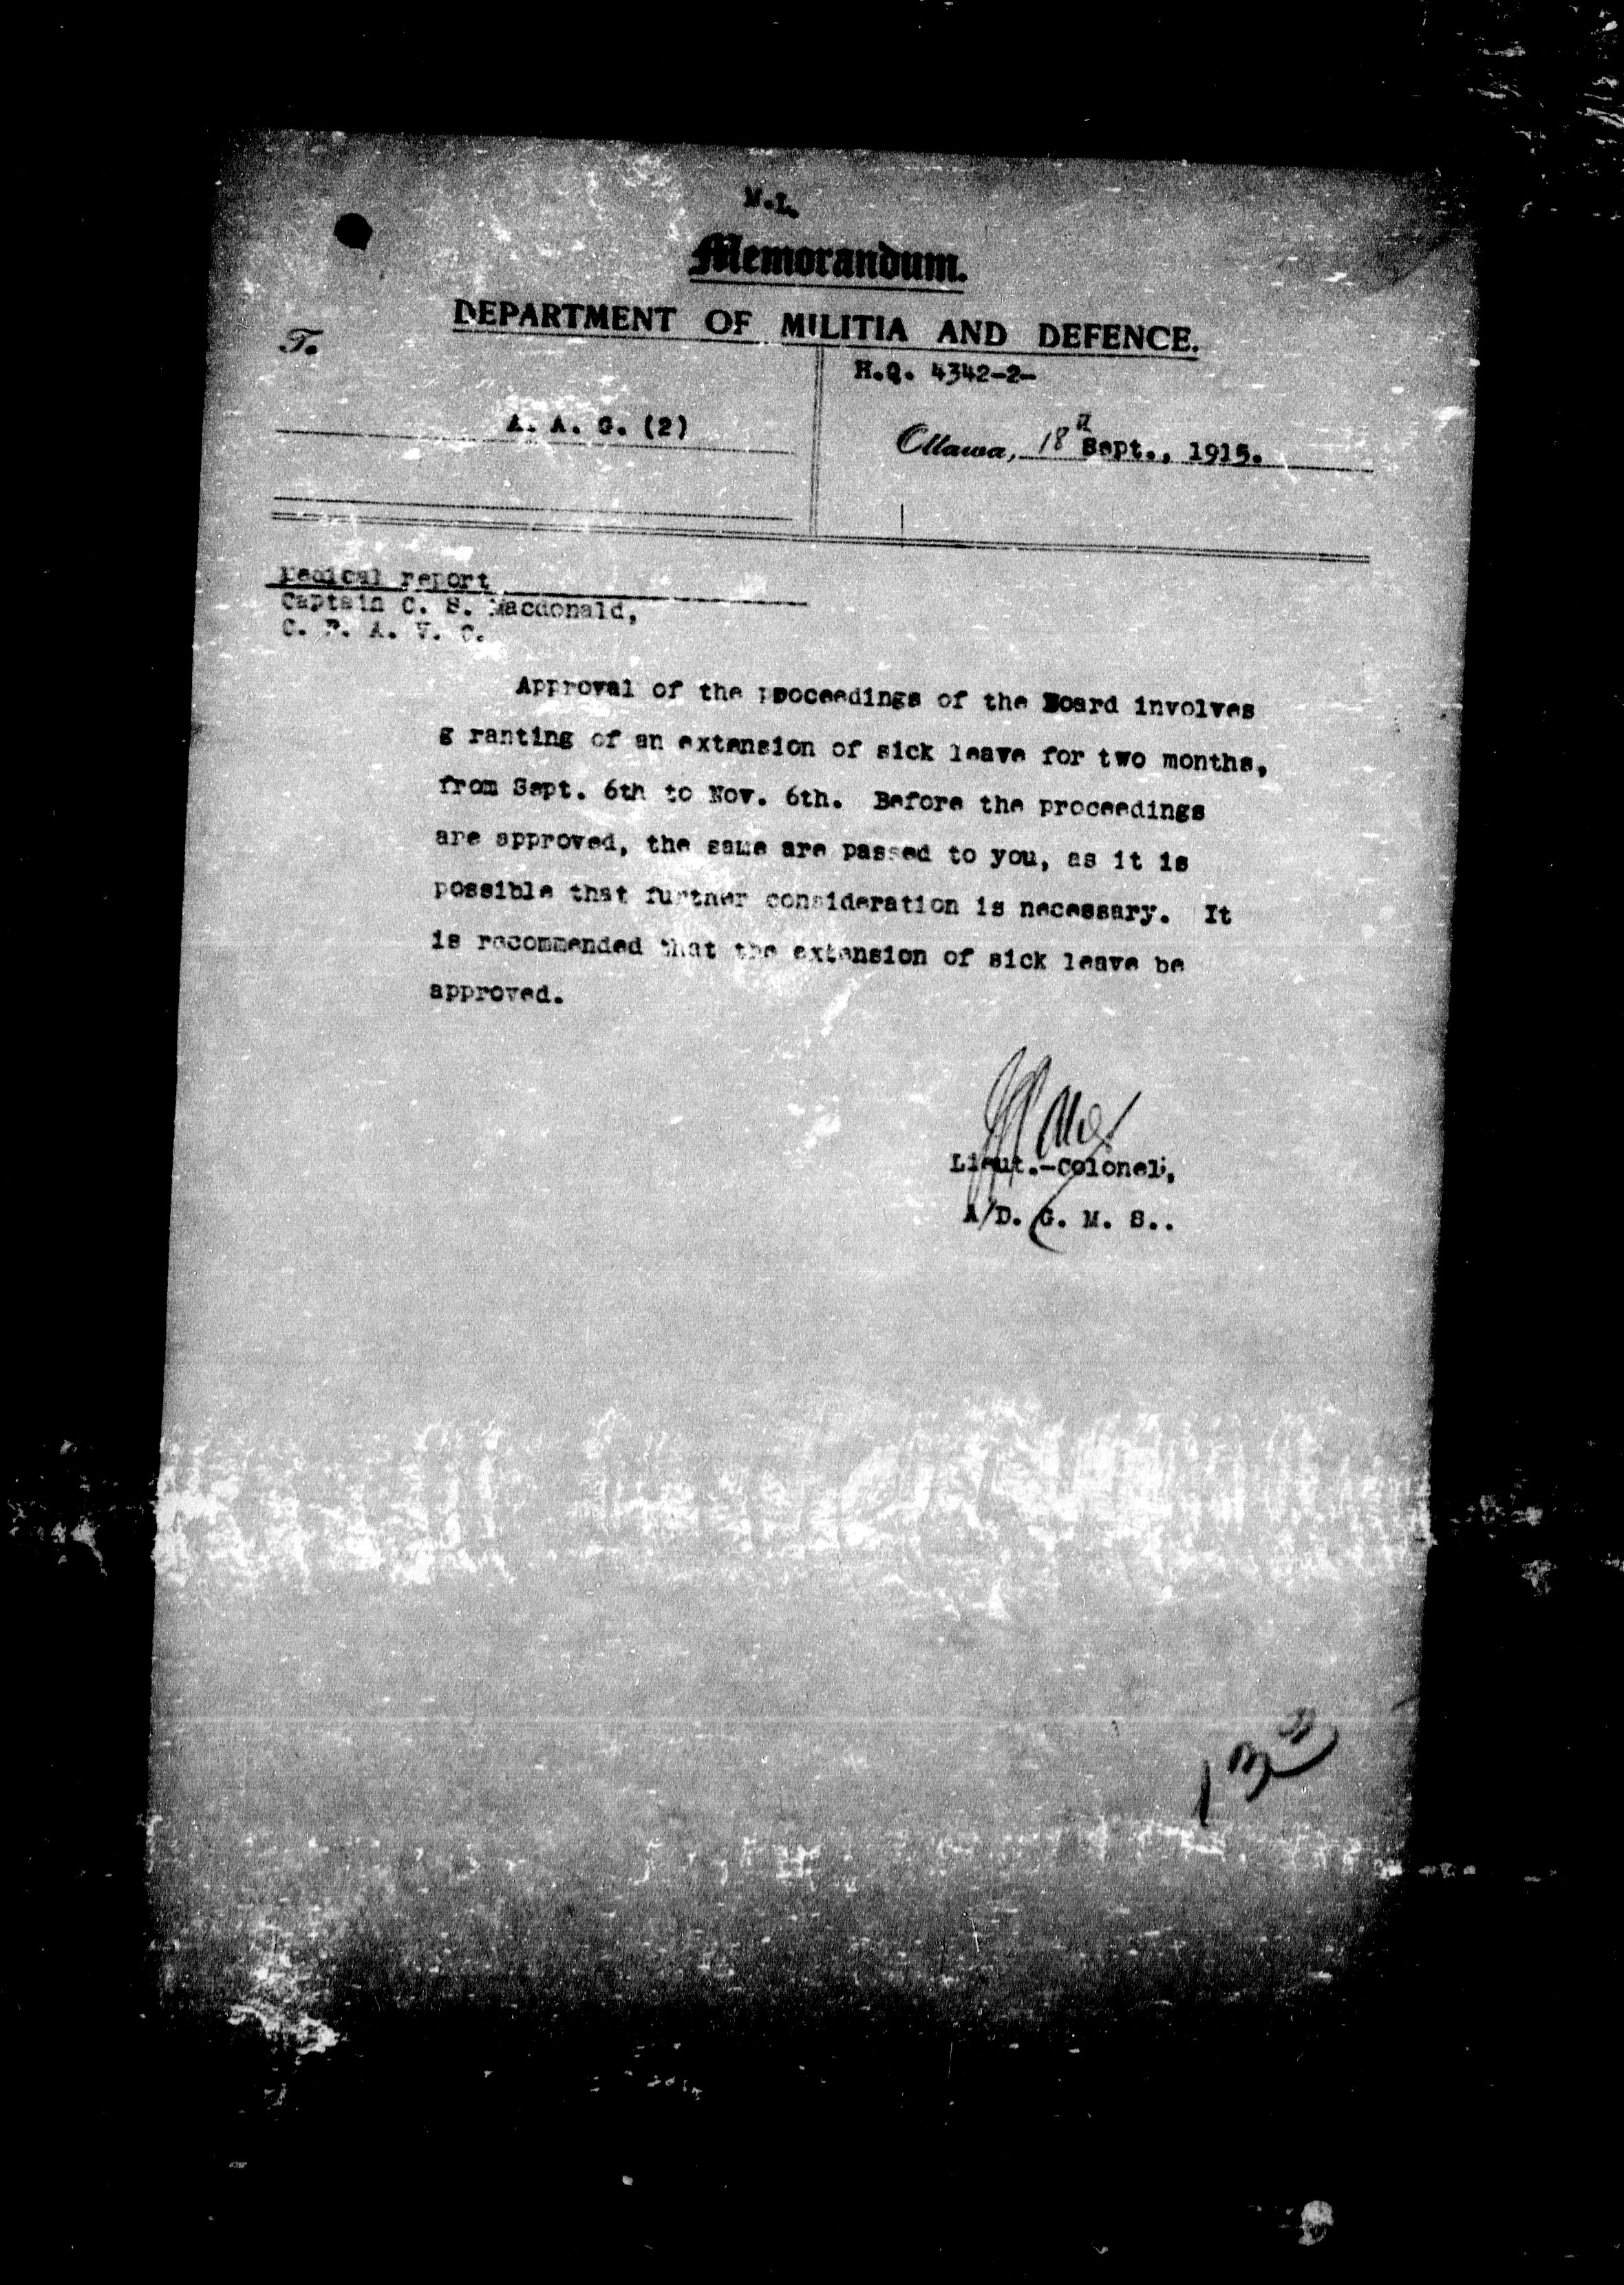 M.L.
Memorandum.
DEPARTMENT OF MILITIA AND DEFENCE.
To
H.Q. 4342-2-
A. A. G. (2)
Ottawa, 18th Sept., 1915.
Medical report
Captain C. S. Macdonald,
C. P. A. V. C.
Approval of the proceedings of the Board involves
g ranting of an extension of sick leave for two months,
from Sept. 6th to Nov. 6th. Before the proceedings
are approved, the same are passed to you, as it is
possible that further consideration is necessary. It
is recommended that the extension of sick leave be
approved.
Lieut.-Colonel,
A/D. G. M. S..